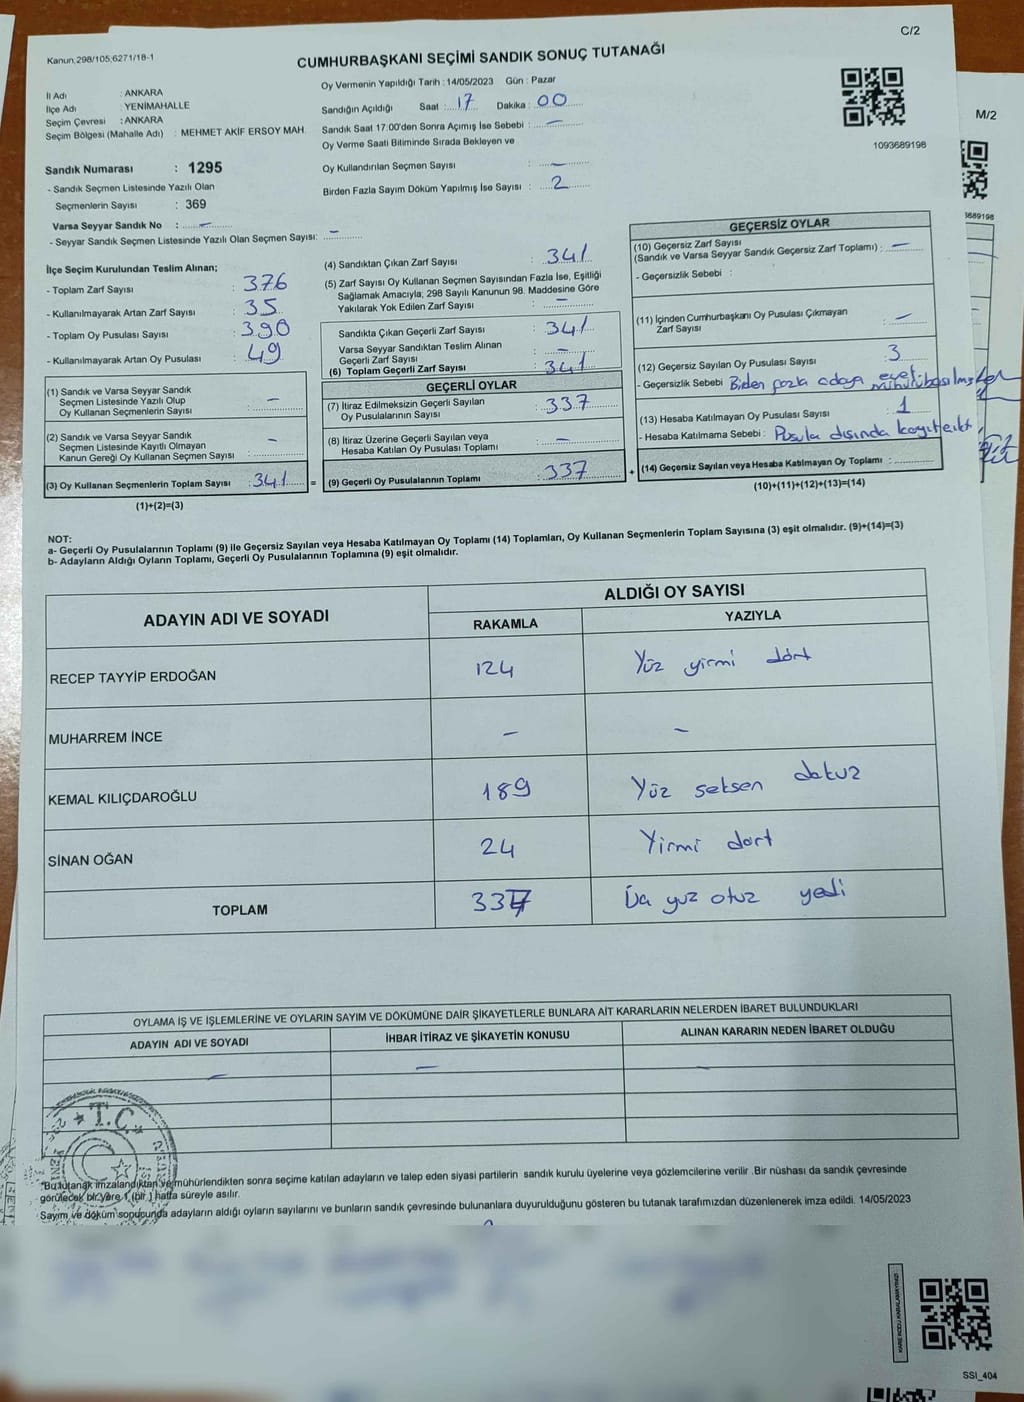 C/2
Kanun,298/105,6271/18-1
CUMHURBAŞKANI SEÇİMİ SANDIK SONUÇ TUTANAĞI
İl Adı : ANKARA
İlçe Adı : YENİMAHALLE
Seçim Çevresi : ANKARA
Seçim Bölgesi (Mahalle Adı) : MEHMET AKİF ERSOY MAH.
Sandık Numarası : 1295
- Sandık Seçmen Listesinde Yazılı Olan
Seçmenlerin Sayısı : 369
Varsa Seyyar Sandık No : –
- Seyyar Sandık Seçmen Listesinde Yazılı Olan Seçmen Sayısı: –
Oy Vermenin Yapıldığı Tarih : 14/05/2023 Gün : Pazar
Sandığın Açıldığı Saat : 17 Dakika : 00
Sandık Saat 17:00'den Sonra Açımış İse Sebebi : –
Oy Verme Saati Bitiminde Sırada Bekleyen ve
Oy Kullandırılan Seçmen Sayısı : –
Birden Fazla Sayım Döküm Yapılmış İse Sayısı : 2
1093689198
M/2
İlçe Seçim Kurulundan Teslim Alınan;
- Toplam Zarf Sayısı : 376
- Kullanılmayarak Artan Zarf Sayısı : 35
- Toplam Oy Pusulası Sayısı : 390
- Kullanılmayarak Artan Oy Pusulası : 49
(1) Sandık ve Varsa Seyyar Sandık
Seçmen Listesinde Yazılı Olup
Oy Kullanan Seçmenlerin Sayısı : –
(2) Sandık ve Varsa Seyyar Sandık
Seçmen Listesinde Kayıtlı Olmayan
Kanun Gereği Oy Kullanan Seçmen Sayısı : –
(3) Oy Kullanan Seçmenlerin Toplam Sayısı : 341 =
(1)+(2)=(3)
(4) Sandıktan Çıkan Zarf Sayısı : 341
(5) Zarf Sayısı Oy Kullanan Seçmen Sayısından Fazla İse, Eşitliği
Sağlamak Amacıyla; 298 Sayılı Kanunun 98. Maddesine Göre
Yakılarak Yok Edilen Zarf Sayısı : –
Sandıkta Çıkan Geçerli Zarf Sayısı : 341
Varsa Seyyar Sandıktan Teslim Alınan
Geçerli Zarf Sayısı : –
(6) Toplam Geçerli Zarf Sayısı : 341
GEÇERLİ OYLAR
(7) İtiraz Edilmeksizin Geçerli Sayılan
Oy Pusulalarının Sayısı : 337
(8) İtiraz Üzerine Geçerli Sayılan veya
Hesaba Katılan Oy Pusulası Toplamı : –
(9) Geçerli Oy Pusulalarının Toplamı : 337 +
GEÇERSİZ OYLAR
(10) Geçersiz Zarf Sayısı
(Sandık ve Varsa Seyyar Sandık Geçersiz Zarf Toplamı) : –
- Geçersizlik Sebebi :
(11) İçinden Cumhurbaşkanı Oy Pusulası Çıkmayan
Zarf Sayısı : –
(12) Geçersiz Sayılan Oy Pusulası Sayısı : 3
- Geçersizlik Sebebi Birden fazla adaya evet mührü basılmış
(13) Hesaba Katılmayan Oy Pusulası Sayısı : 1
- Hesaba Katılmama Sebebi : Pusula dışında
(14) Geçersiz Sayılan veya Hesaba Katılmayan Oy Toplamı :
(10)+(11)+(12)+(13)=(14)
NOT:
a- Geçerli Oy Pusulalarının Toplamı (9) ile Geçersiz Sayılan veya Hesaba Katılmayan Oy Toplamı (14) Toplamları, Oy Kullanan Seçmenlerin Toplam Sayısına (3) eşit olmalıdır. (9)+(14)=(3)
b- Adayların Aldığı Oyların Toplamı, Geçerli Oy Pusulalarının Toplamına (9) eşit olmalıdır.
ADAYIN ADI VE SOYADI
ALDIĞI OY SAYISI
RAKAMLA YAZIYLA
RECEP TAYYİP ERDOĞAN 124 Yüz yirmi dört
MUHARREM İNCE – –
KEMAL KILIÇDAROĞLU 189 Yüz seksen dokuz
SİNAN OĞAN 24 Yirmi dört
TOPLAM 337 Üç yüz otuz yedi
OYLAMA İŞ VE İŞLEMLERİNE VE OYLARIN SAYIM VE DÖKÜMÜNE DAİR ŞİKAYETLERLE BUNLARA AİT KARARLARIN NELERDEN İBARET BULUNDUKLARI
ADAYIN ADI VE SOYADI İHBAR İTİRAZ VE ŞİKAYETİN KONUSU ALINAN KARARIN NEDEN İBARET OLDUĞU
– – –
T.C.
"Bu tutanak imzalandıktan ve mühürlendikten sonra seçime katılan adayların ve talep eden siyasi partilerin sandık kurulu üyelerine veya gözlemcilerine verilir. Bir nüshası da sandık çevresinde
görülecek bir yere 1 (bir ) hafta süreyle asılır.
Sayım ve döküm sonucunda adayların aldığı oyların sayılarını ve bunların sandık çevresinde bulunanlara duyurulduğunu gösteren bu tutanak tarafımızdan düzenlenerek imza edildi. 14/05/2023
KARE KODU KARALAMAYINIZ!
SSI_404